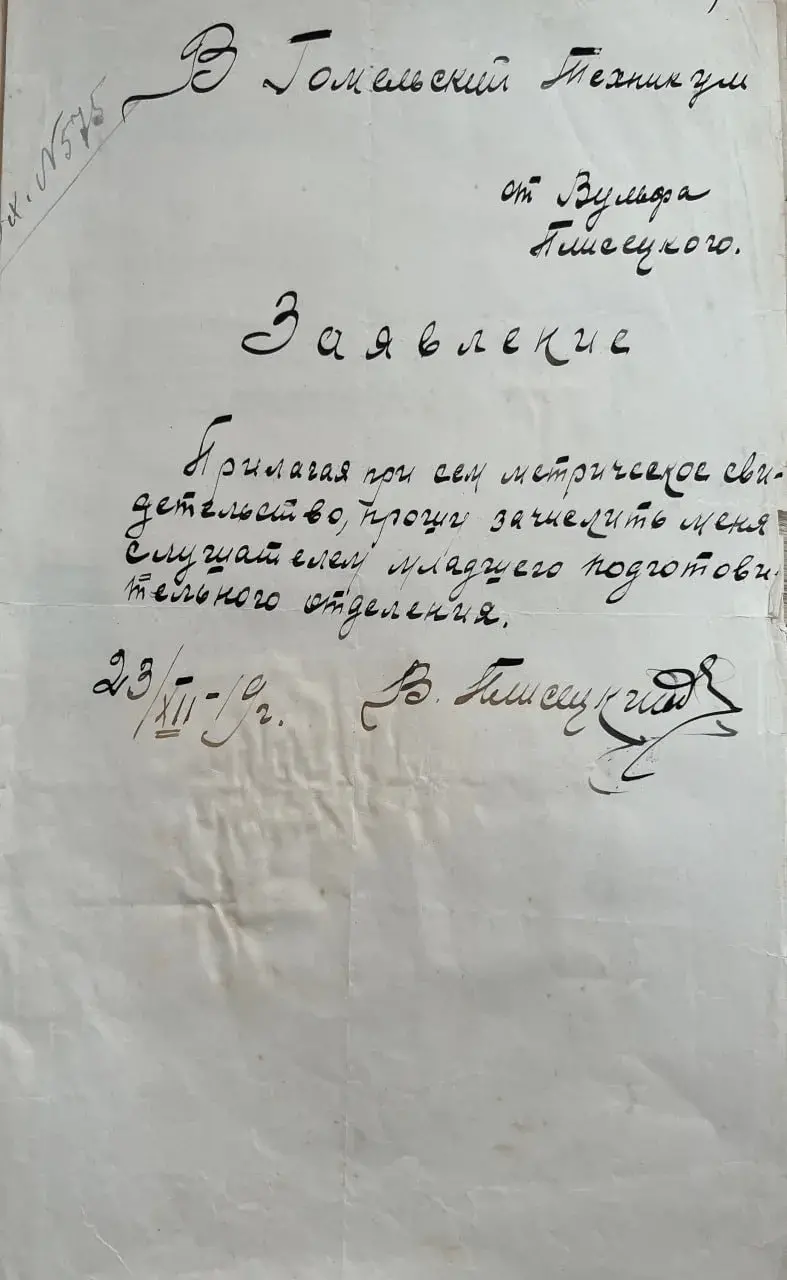 В Гомельский Техникум
Вх. N 575
от Вульфа
Плисецкого.
Заявление
Прилагая при сем метрическое сви-
детельство, прошу зачислить меня
слушателем младшего подготови-
тельного отделения.
23/XII-19г. В. Плисецкий